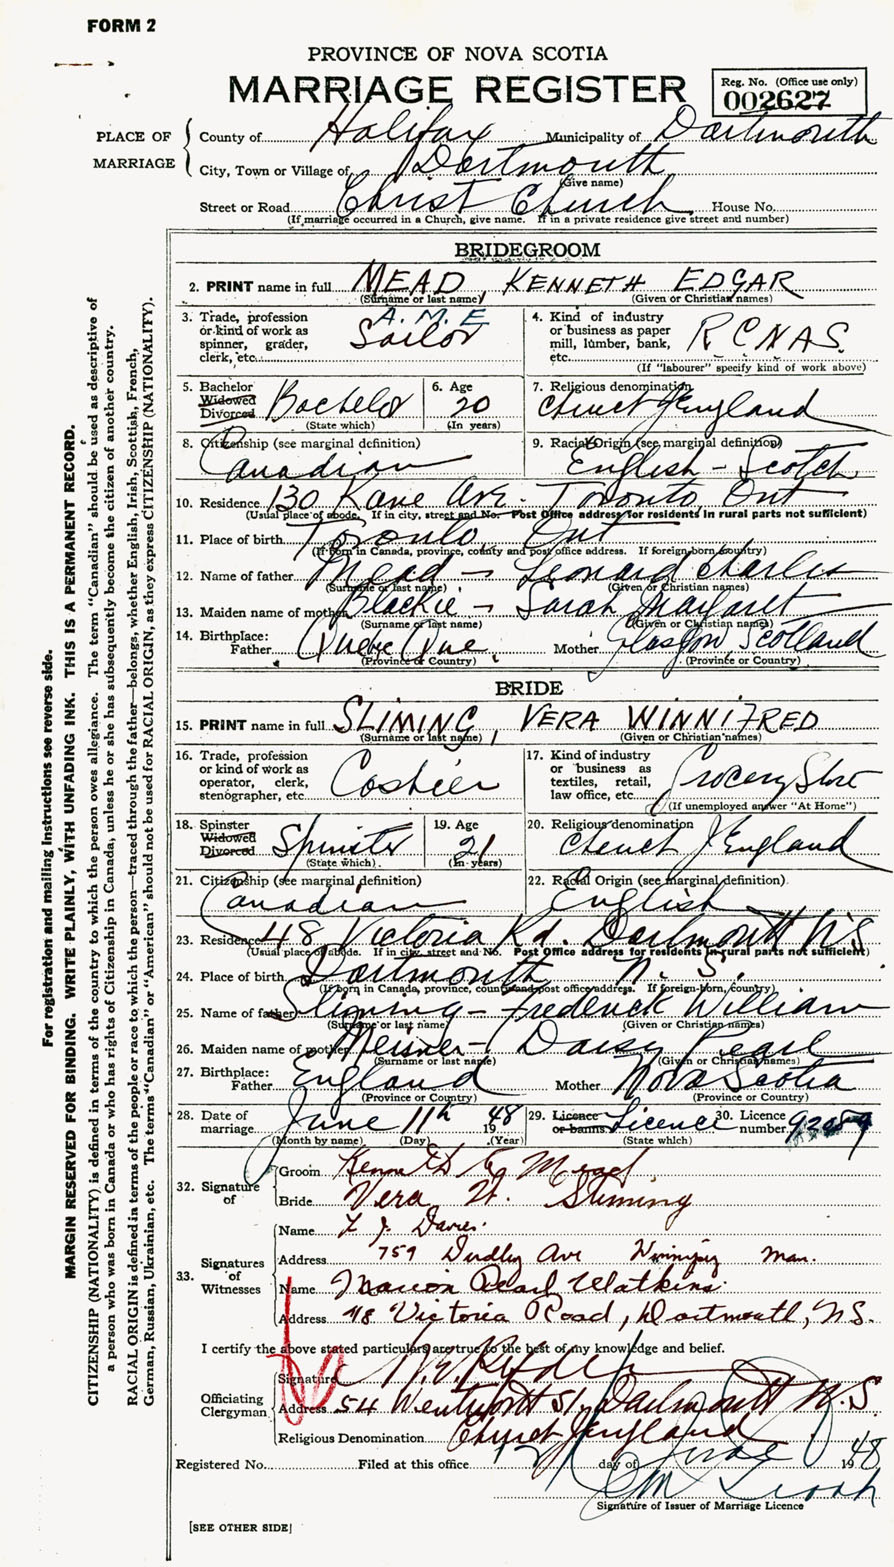 FORM 2
PROVINCE OF NOVA SCOTIA
MARRIAGE REGISTER
Reg. No. (Office use only)
002627
PLACE OF MARRIAGE
County of Halifax Municipality of Dartmouth
City, Town or Village of Dartmouth
(Give name)
Street or Road Christ Church House No.
(If marriage occurred in a Church, give name. If in a private residence give street and number)
BRIDEGROOM
2. PRINT name in full MEAD, KENNETH EDGAR
(Surname or last name) (Given or Christian names)
3. Trade, profession or kind of work as spinner, grader, clerk, etc. A.M.E Sailor
4. Kind of industry or business as paper mill, lumber, bank, etc. RCNAS.
(If "labourer" specify kind of work above)
5. Bachelor Widowed Divorced Bachelor
(State which)
6. Age 20
(In years)
7. Religious denomination Church of England
8. Citizenship (see marginal definition) Canadian
9. Racial Origin (see marginal definition) English - Scotch
10. Residence 130 Kane Ave. Toronto Ont
(Usual place of abode. If in city, street and No. Post Office address for residents in rural parts not sufficient)
11. Place of birth Toronto, Ont
(If born in Canada, province, county and post office address. If foreign-born, country)
12. Name of father Mead - Leonard Charles
(Surname or last name) (Given or Christian names)
13. Maiden name of mother Blackie - Sarah Margaret
(Surname or last name) (Given or Christian names)
14. Birthplace:
Father Quebec Que Mother Glasgow, Scotland
(Province or Country) (Province or Country)
BRIDE
15. PRINT name in full SLIMING, VERA WINNIFRED
(Surname or last name) (Given or Christian names)
16. Trade, profession or kind of work as operator, clerk, stenographer, etc. Cashier
17. Kind of industry or business as textiles, retail, law office, etc. Grocery Store
(If unemployed answer "At Home")
18. Spinster Widowed Divorced Spinster
(State which)
19. Age 21
(In years)
20. Religious denomination Church of England
21. Citizenship (see marginal definition) Canadian
22. Racial Origin (see marginal definition) English
23. Residence 48 Victoria Rd. Dartmouth N.S
(Usual place of abode. If in city, street and No. Post Office address for residents in rural parts not sufficient)
24. Place of birth Dartmouth N. S.
(If born in Canada, province, county and post office address. If foreign-born, country)
25. Name of father Sliming - Frederick William
(Surname or last name) (Given or Christian names)
26. Maiden name of mother Meisner - Daisy Pearl
(Surname or last name) (Given or Christian names)
27. Birthplace:
Father England Mother Nova Scotia
(Province or Country) (Province or Country)
28. Date of marriage June 11th 1948
(Month by name) (Day) (Year)
29. Licence or banns Licence
(State which)
30. Licence number
32. Signature of
Groom Kenneth Eg Mead
Bride Vera W. Sliming
33. Signatures of Witnesses
Name L J. Davies.
Address 759 Dudley Ave Winnipeg Man.
Name Marion Pearl Watkins.
Address 48 Victoria Road, Dartmouth, N.S.
I certify the above stated particulars are true to the best of my knowledge and belief.
Officiating Clergyman
Signature
Address 54 Wentworth St, Dartmouth N.S
Religious Denomination Church of England
Registered No. Filed at this office day of June 1948
Signature of Issuer of Marriage Licence
[SEE OTHER SIDE]
For registration and mailing instructions see reverse side.
MARGIN RESERVED FOR BINDING. WRITE PLAINLY, WITH UNFADING INK. THIS IS A PERMANENT RECORD.
CITIZENSHIP (NATIONALITY) is defined in terms of the country to which the person owes allegiance. The term "Canadian" should be used as descriptive of
a person who was born in Canada or who has rights of Citizenship in Canada, unless he or she has subsequently become the citizen of another country.
RACIAL ORIGIN is defined in terms of the people or race to which the person—traced through the father—belongs, whether English, Irish, Scottish, French,
German, Russian, Ukrainian, etc. The terms "Canadian" or "American" should not be used for RACIAL ORIGIN, as they express CITIZENSHIP (NATIONALITY).